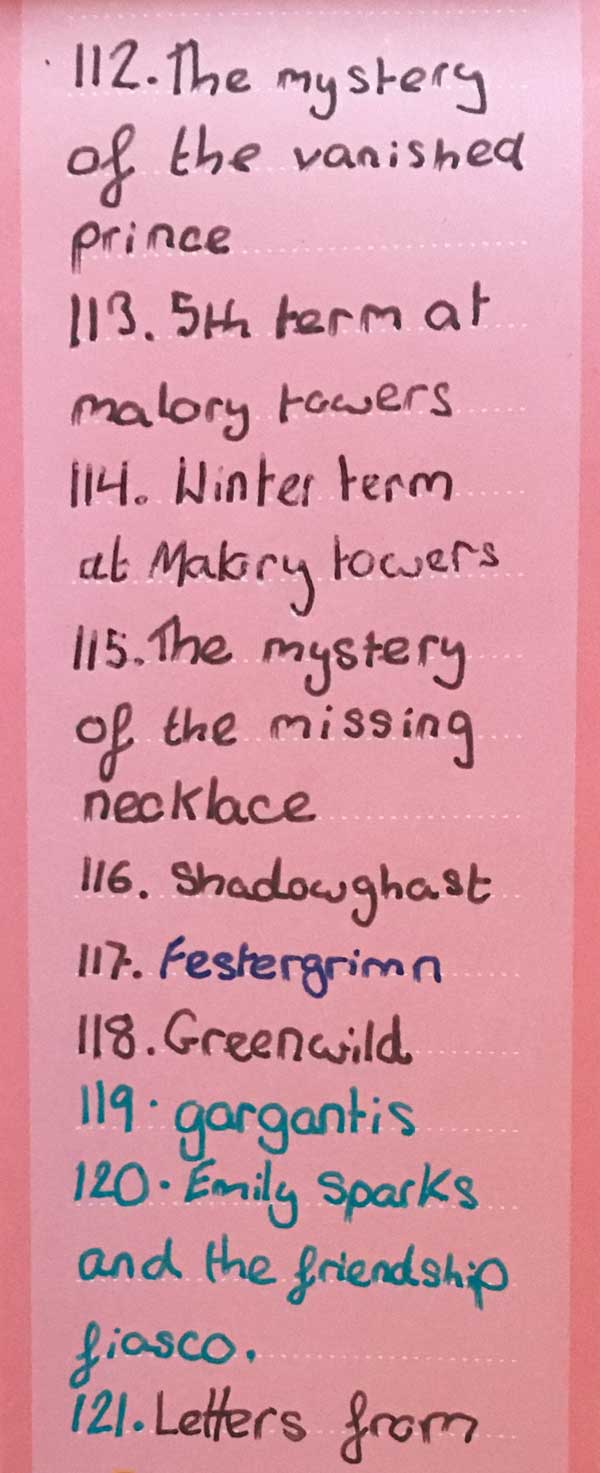 112. The mystery
of the vanished
prince
113. 5th term at
malory towers
114. Winter term
at Malory towers
115. The mystery
of the missing
necklace
116. Shadowghast
117. Festergrimn
118. Greenwild
119. gargantis
120. Emily Sparks
and the friendship
fiasco.
121. Letters from